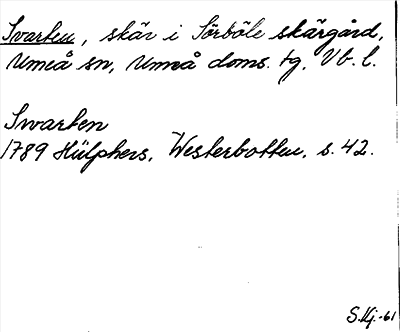 Svarten, skär i Sörböle skärgård,
Umeå sn, Umeå doms. tg, Vb. l.
Swarten
1789 Hülphers, Westerbotten, s. 42.
S.Kj.-61